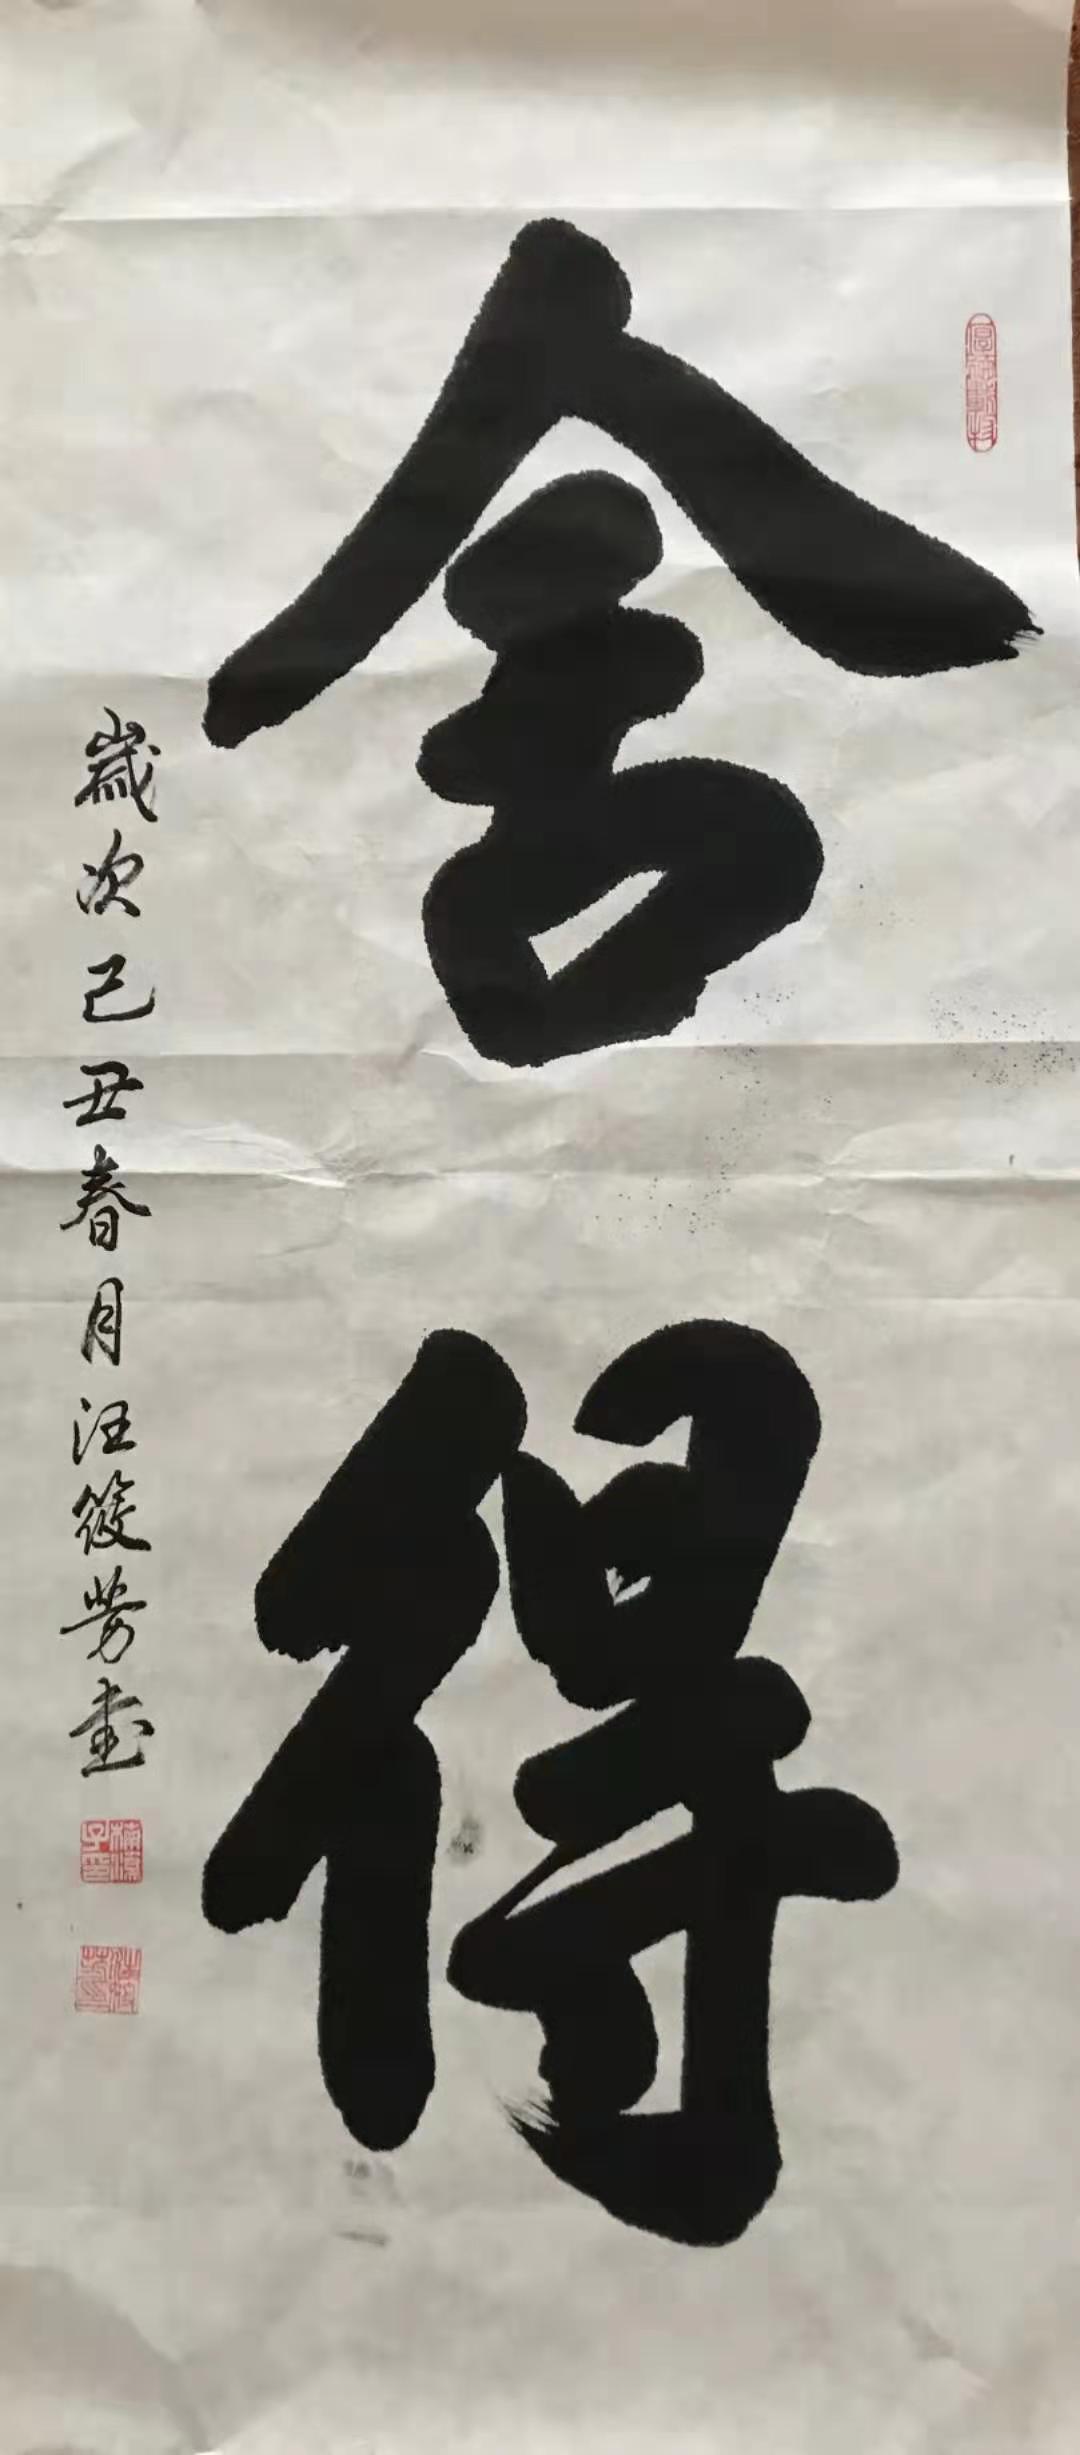 舍得
歲次己丑春月汪筱芳書